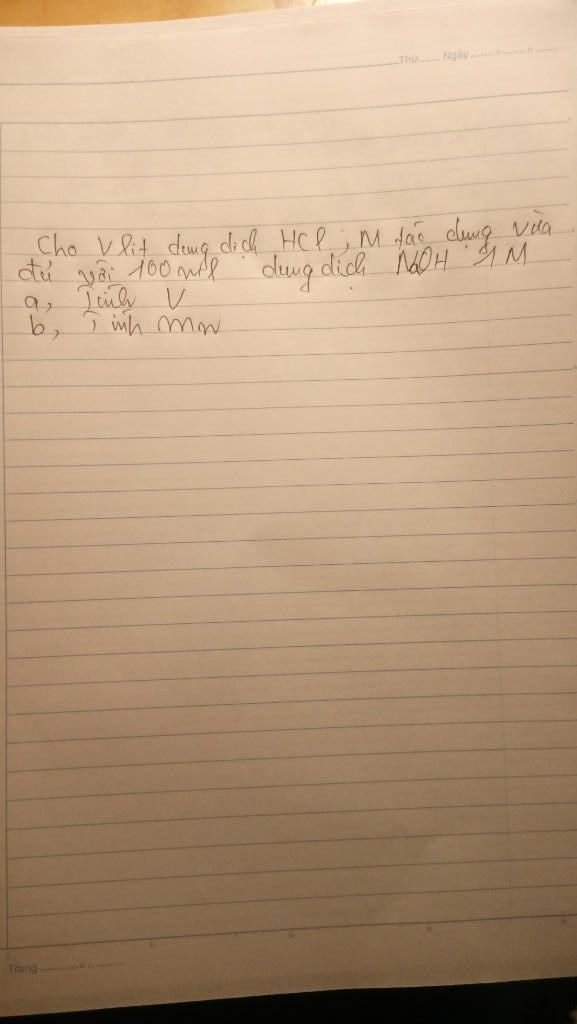 Thứ....... Ngày.......
Cho V lit dung dịch HCl, M tác dụng vừa
đủ với 100 ml dung dịch NaOH 1 M
a, Tính V
b, Tính
Trang